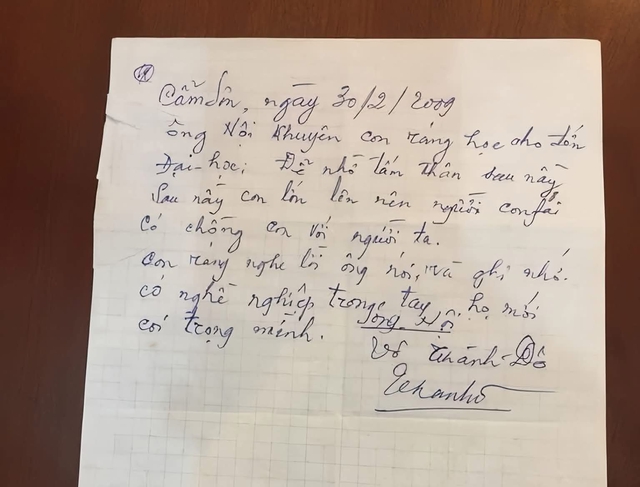 Cẩm Sơn, ngày 30/2/2009
ông Nội khuyên con ráng học cho đến
Đại-học; Để nhờ tấm thân sau nầy
Sau nầy con lớn lên nên người con fải
có chồng con với người ta.
con ráng nghe lời ông nói, và ghi nhớ.
có nghề nghiệp trong tay, họ mới
coi trọng mình.
ông Nội
Võ Thành-Đô